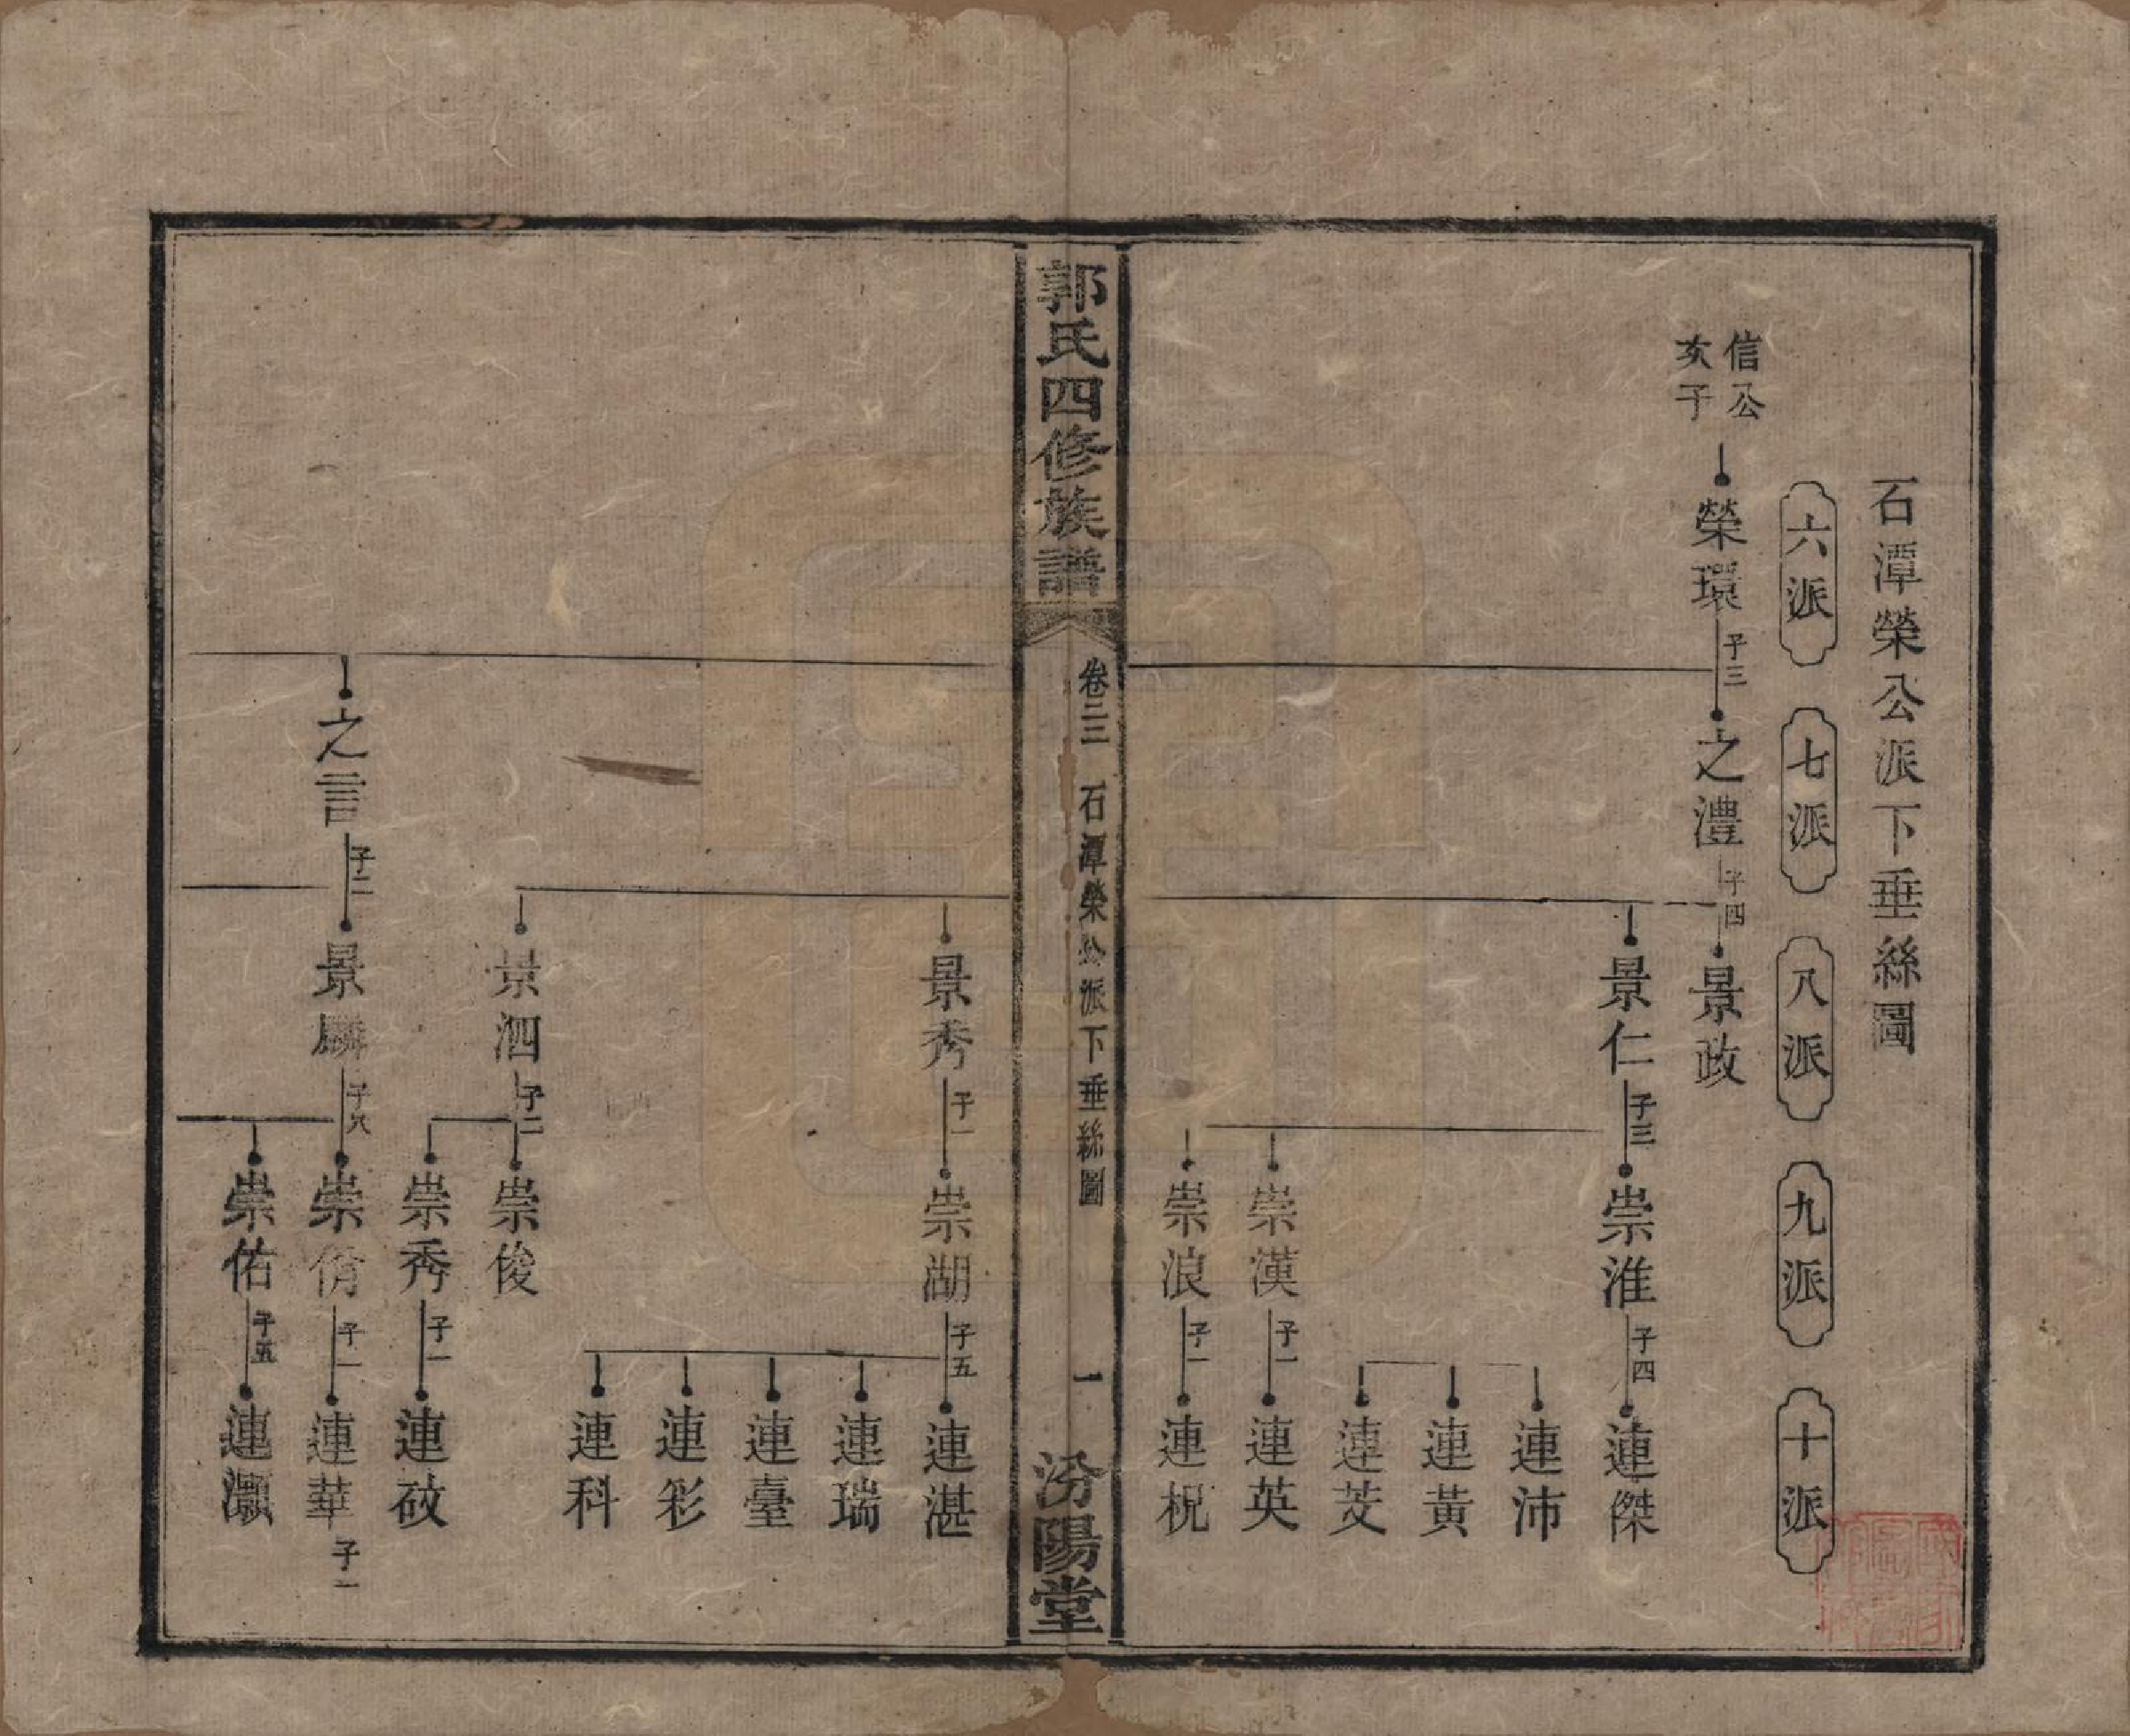 石潭榮公派下垂絲圖
六派
七派
八派
九派
十派
信公
次子
榮環
子三
之澧
子四
景政
景仁
子三
崇淮
子四
連傑
連沛
連黃
連芠
崇漢
子一
連英
崇浪
子一
連柷
郭氏四修族譜
卷二三
石潭榮公派下垂絲圖
一
汾陽堂
景秀
子一
崇湖
子五
連湛
連瑞
連臺
連彩
連科
景泗
子二
崇俊
崇秀
子一
連㩼
之言
子二
景麟
子八
崇脩
子一
連華
子一
崇佑
子五
連灝